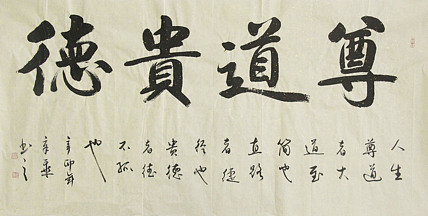 尊道貴德
人生
尊道
者大
道至
簡也
直路
者
徑也
貴德
者德
不孤
也
辛卯年
書之